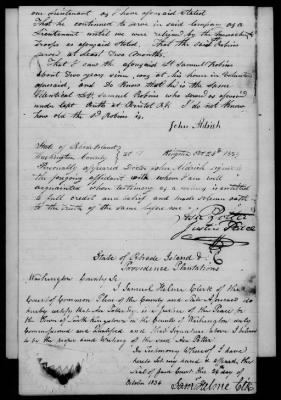 our Lieutenant as I have aforesaid Stated
That he continued to serve in said Company as a
Lieutenant until we were relieved by the
Troops as aforesaid Stated. That the said Robins
served at least two Months.
That I saw the aforesaid Lt Samuel Robins
about two years since, at his house in
aforesaid, and Do know that he is the same
Identical Lt. Samuel Robins who served as aforesaid
under last Auth at Bristol R.I. I do not know
how old the Sd Robins is.
John Aldrich
State of Rhode Island
Washington County Kingston Oct 25th
Personally appeared Doctor John Aldrich signer to
the foregoing affidavit with whom I am well
acquainted whose testimony as a witness is entitled
to full credit and belief and made solemn oath
to the truth of the same before me
Asa Potter
Justice Peace
State of Rhode Island &
Providence Plantations
Washington County Sc.
I Samuel Helme Clerk of the
Court of Common Pleas of the County and State Aforesaid do
hereby certify that Asa Potter Esq. is a Justice of the Peace for
the Town of South Kingstown in the County of Washington duly
Commissioned and Qualified and that Signature above I believe
to be the proper hand Writing of the said Asa Potter
In Testimony Whereof I have
hereto Set my hand & affixed the
Seal of said Court the 29th day of
October 1836
Saml Helme Clk